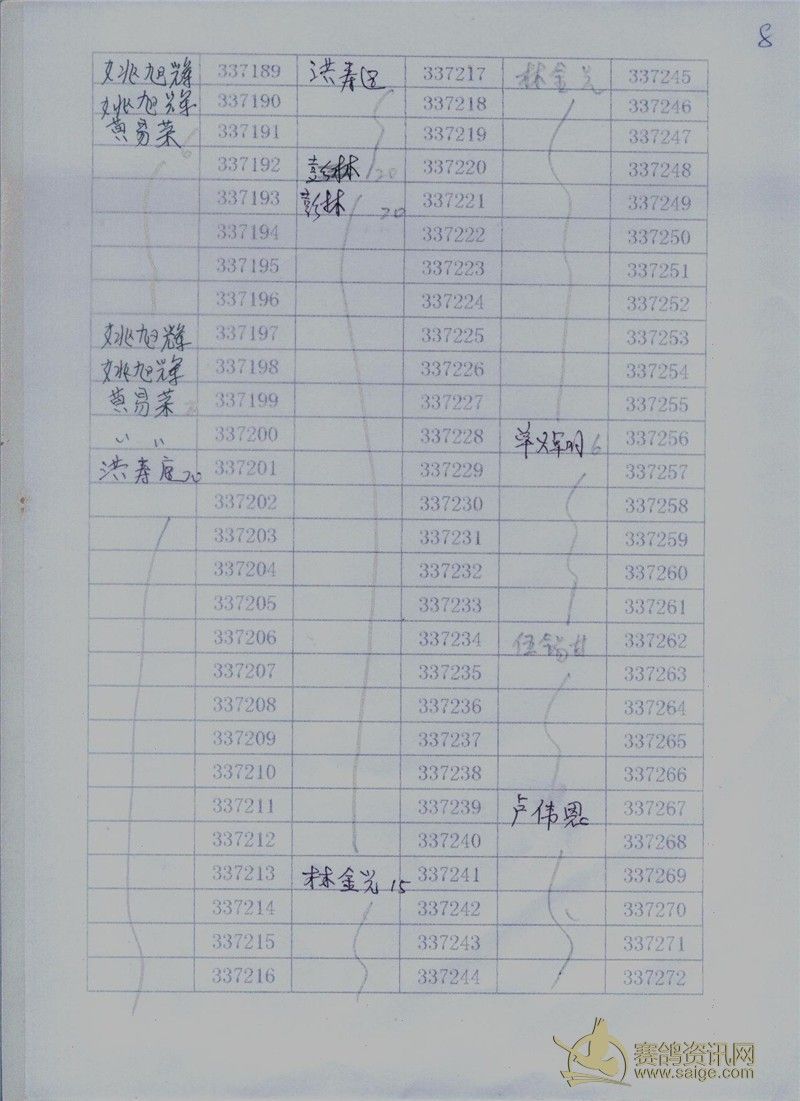 8
姚旭辉 337189 洪寿 337217 林金兴 337245
姚旭辉 337190 337218 337246
黄易荣 6 337191 337219 337247
337192 彭林 20 337220 337248
337193 彭林 20 337221 337249
337194 337222 337250
337195 337223 337251
337196 337224 337252
姚旭辉 337197 337225 337253
姚旭辉 337198 337226 337254
黄易荣 337199 337227 337255
〃 〃 337200 337228 6 337256
洪寿 20 337201 337229 337257
337202 337230 337258
337203 337231 337259
337204 337232 337260
337205 337233 337261
337206 337234 337262
337207 337235 337263
337208 337236 337264
337209 337237 337265
337210 337238 337266
337211 337239 卢伟恩 337267
337212 337240 337268
337213 林金兴 15 337241 337269
337214 337242 337270
337215 337243 337271
337216 337244 337272
赛鸽资讯网
www.saige.com